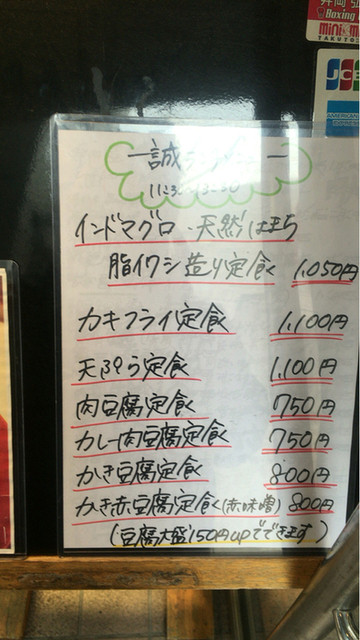 Boxing
mini
JCB
AMERICAN
一誠
11:30-13:30
インドマグロ・天然はまち
脂イワシ造り定食 1,050円
カキフライ定食 1,100円
天ぷら定食 1,100円
肉豆腐定食 750円
カレー肉豆腐定食 750円
かき豆腐定食 800円
かき赤豆腐定食(赤味噌) 800円
(豆腐大盛150円upでできます)